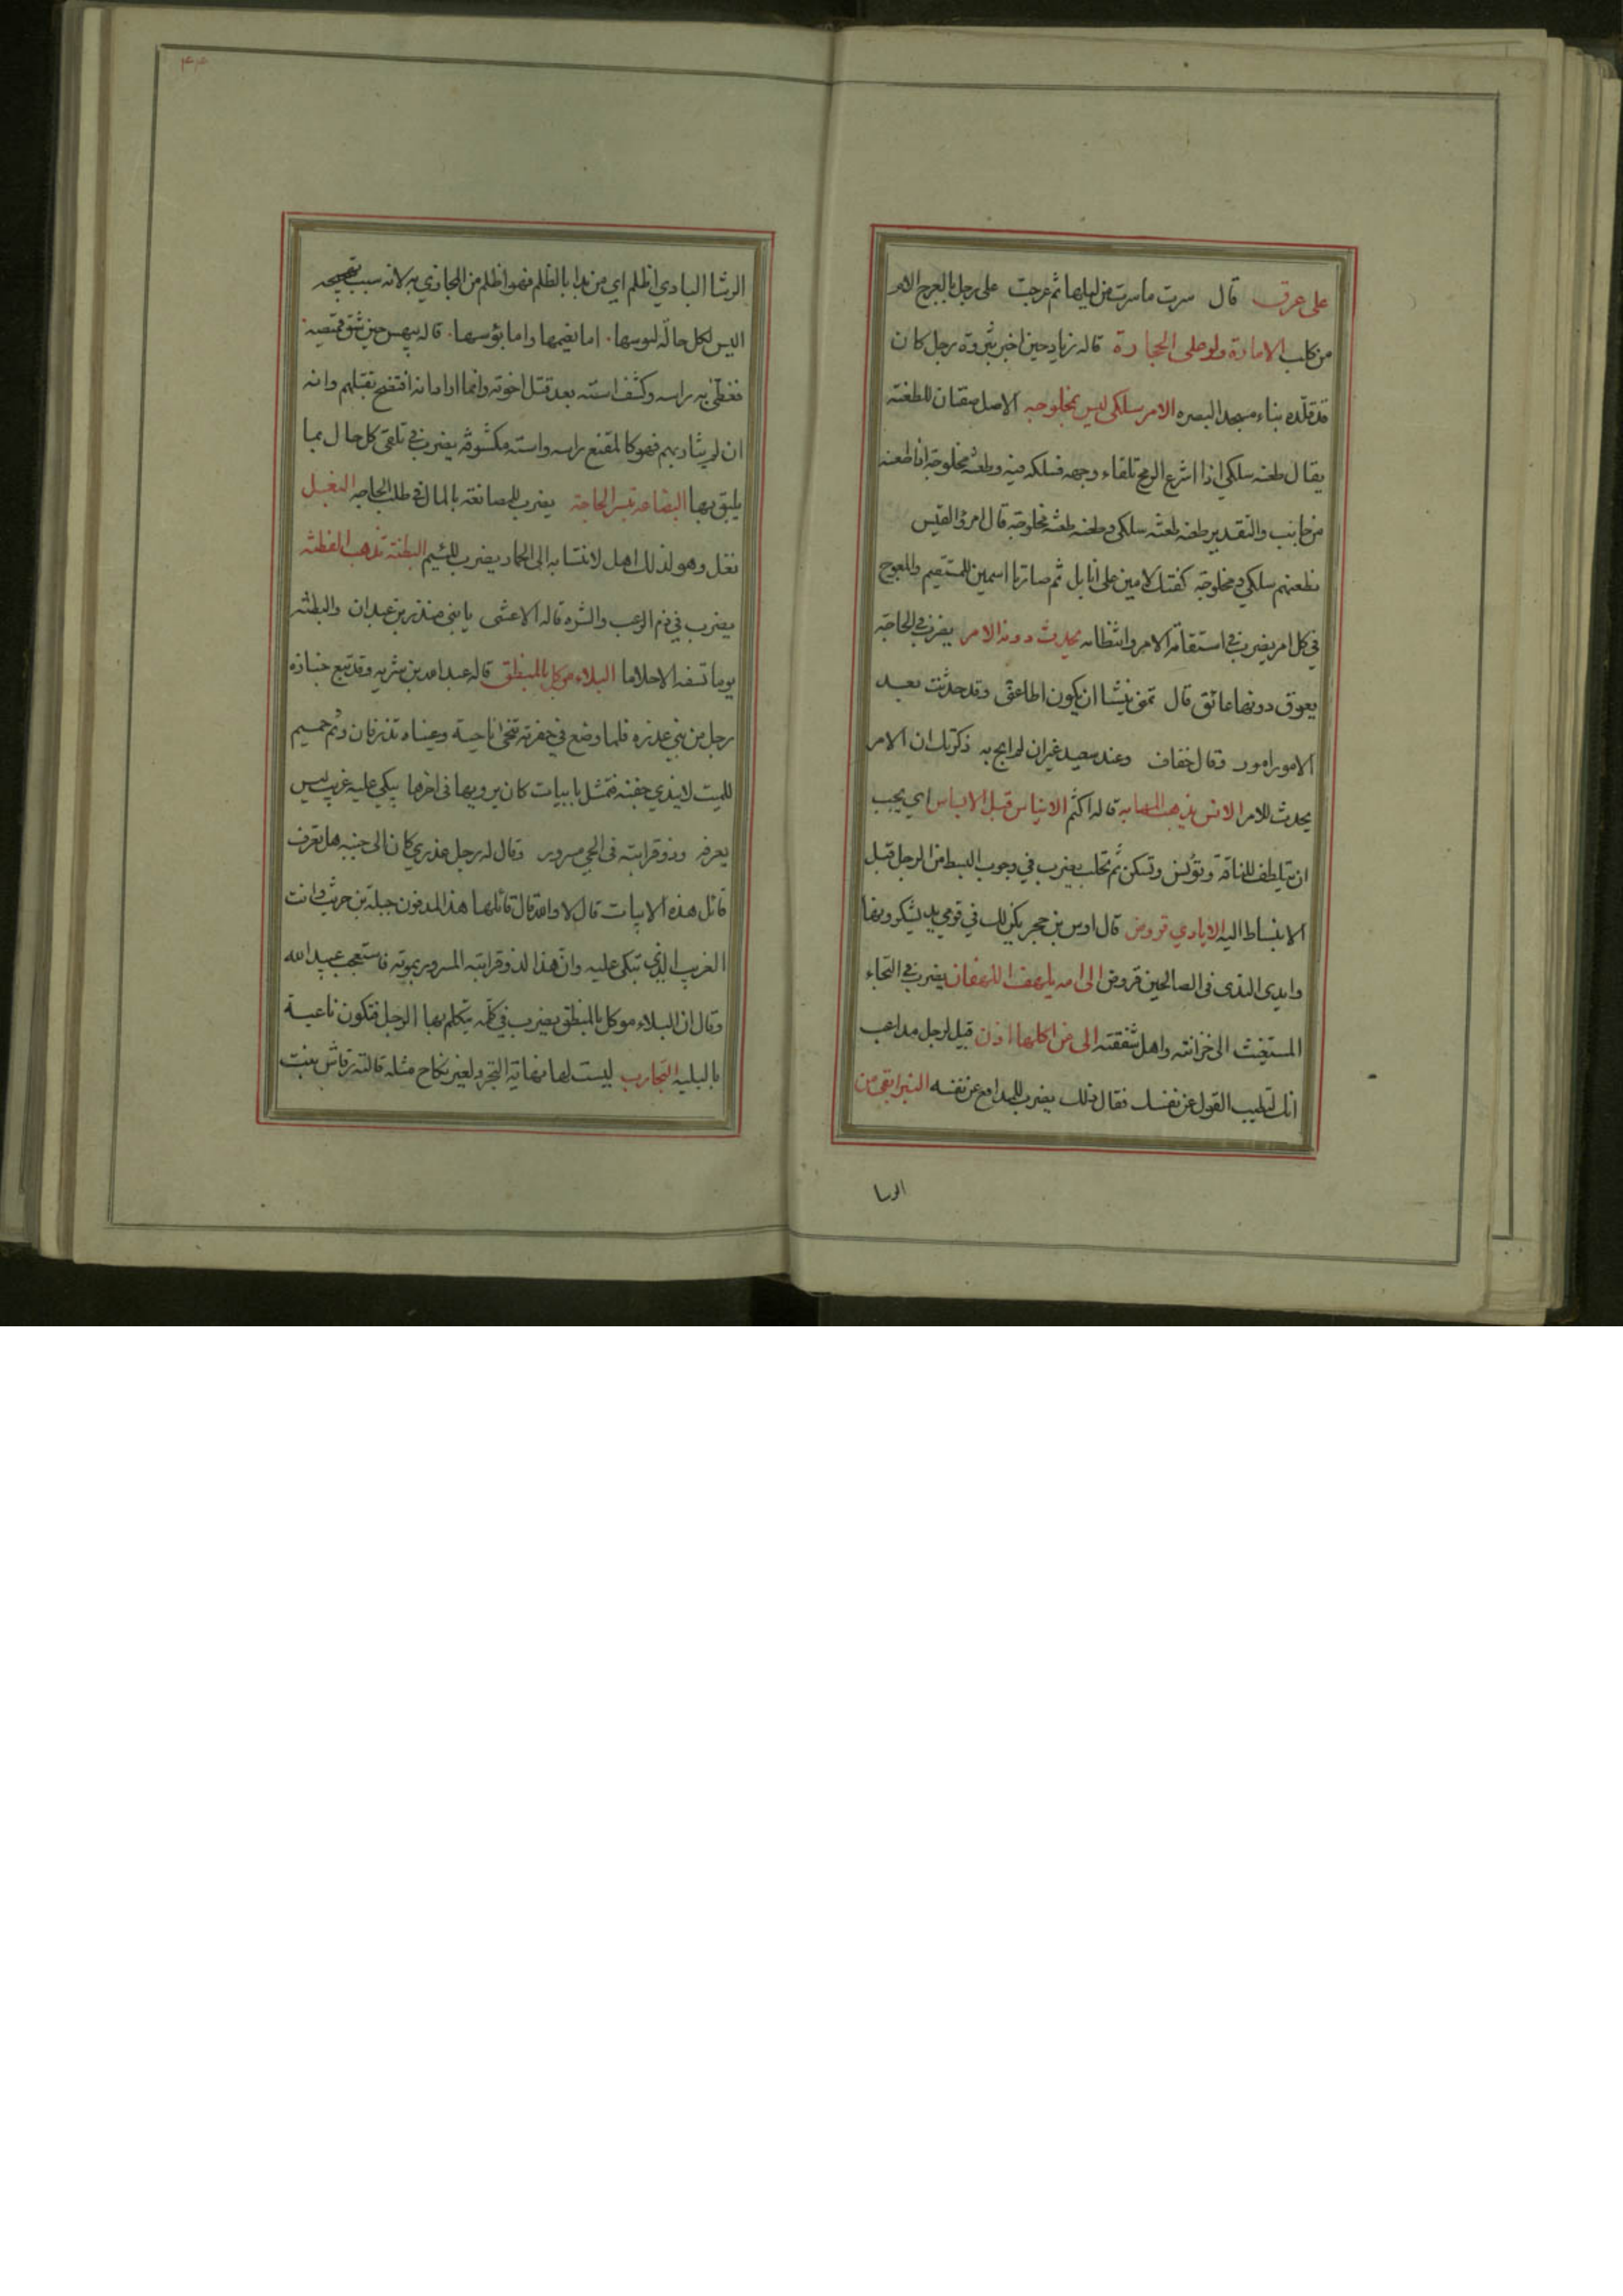 على عرق قال سرت ما سرت من ليلها ثم عرجت على رجل بالعرج الام
من كلب الامارة ولو على الحجارة قاله زياد حين اخبر بثروة رجل كان
قد قلده بناء مسجد البصره الامر سلكى ليس بمخلوجه الاصل صفتان للطعنه
يقال طعنه سلكى اذا اشرع الرمح تلقاء وجهه فسلكه فيه وطعنه مخلوجة اذا طعنه
من جانب والتقدير طعنه طعنة سلكى وطعنه طعنة مخلوجة قال امرؤ القيس
نطعنهم سلكى ومخلوجة كفتك لامين على نابل ثم صارتا اسمين للمستقيم والمعوج
في كل امر يضرب في استقامة الامر وانتظامه يحدث دونه الامر يضرب في الحاجة
يعوق دونها عائق قال تمنى نئيشا ان يكون اطاعنى وقد حدثت بعد
الامور امور وقال خفاف وعند سعيد غير ان لم ابح به ذكرتك ان الامر
يحدث للامر الانس يذهب المهابه قاله اكثم الايناس قبل الابساس اي يجب
ان يتلطف للناقة وتؤنس وتسكن ثم تحلب يضرب في وجوب البسط من الرجل قبل
الانبساط اليه الايادي قروض قال اوس بن حجر يكن لك في قومي يد يشكرونها
وايدى الندى فى الصالحين قروض الى امه يلهف اللهفان يضرب في التجاء
المستغيث الى خزانته واهل شفقته الى من اكلها اذن قيل لرجل مداعب
انك لتطيب القول عن نفسك فقال ذلك يضرب للمدافع عن نفسه البئر ابقى من
الرسا
۴۴
الرشا البادي اظلم اي من بدا بالظلم فهو اظلم من المجازي به لانه سبب تهييجه
البس لكل حالة لبوسها اما نعيمها واما بؤسها قاله بيهس حين شق قميصه
فغطى به راسه وكشف استه بعد قتل اخوته وانما اراد انه افتضح بقتلهم وانه
ان لم يثار بهم فهو كالمقنع براسه واسته مكشوفة يضرب في تلقى كل حال بما
يليق بها البضاعه تيسر الحاجة يضرب للمصانعة بالمال في طلب الحاجه البغل
نغل وهو لذلك اهل لانتسابه الى الحمار يضرب للئيم البطنة تذهب الفطنة
يضرب في ذم الرعب والشره قاله الاعشى يا بنى منذر بن عبدان والبطنة
يوما تسفه الاحلاما البلاء موكل بالمنطق قاله عبيد بن شريه وقد تبع جنازه
رجل من بني عذره فلما وضع في حفرته تنحى ناحية وعيناه تذرفان ولم حميم
للميت لا يندي جفنه فتمثل بابيات كان يرويها فى اخرها يبكي عليه غريب ليس
يعرفه وذو قرابته فى الحي مسرور وقال له رجل عذري كان الى جنبه هل تعرف
قائل هذه الابيات قال لا والله قال قائلها هذا المدفون جبلة بن حريث وانت
الغريب الذي تبكى عليه وان هذا لذو قرابته المسرور بموته فاستعجب عبيد الله
وقال ان البلاء موكل بالمنطق يضرب في كلمه يتكلم بها الرجل فتكون ناعية
بالبليه التجارب ليست لها نهاية التجرد لغير نكاح مثله قالته رقاش بنت